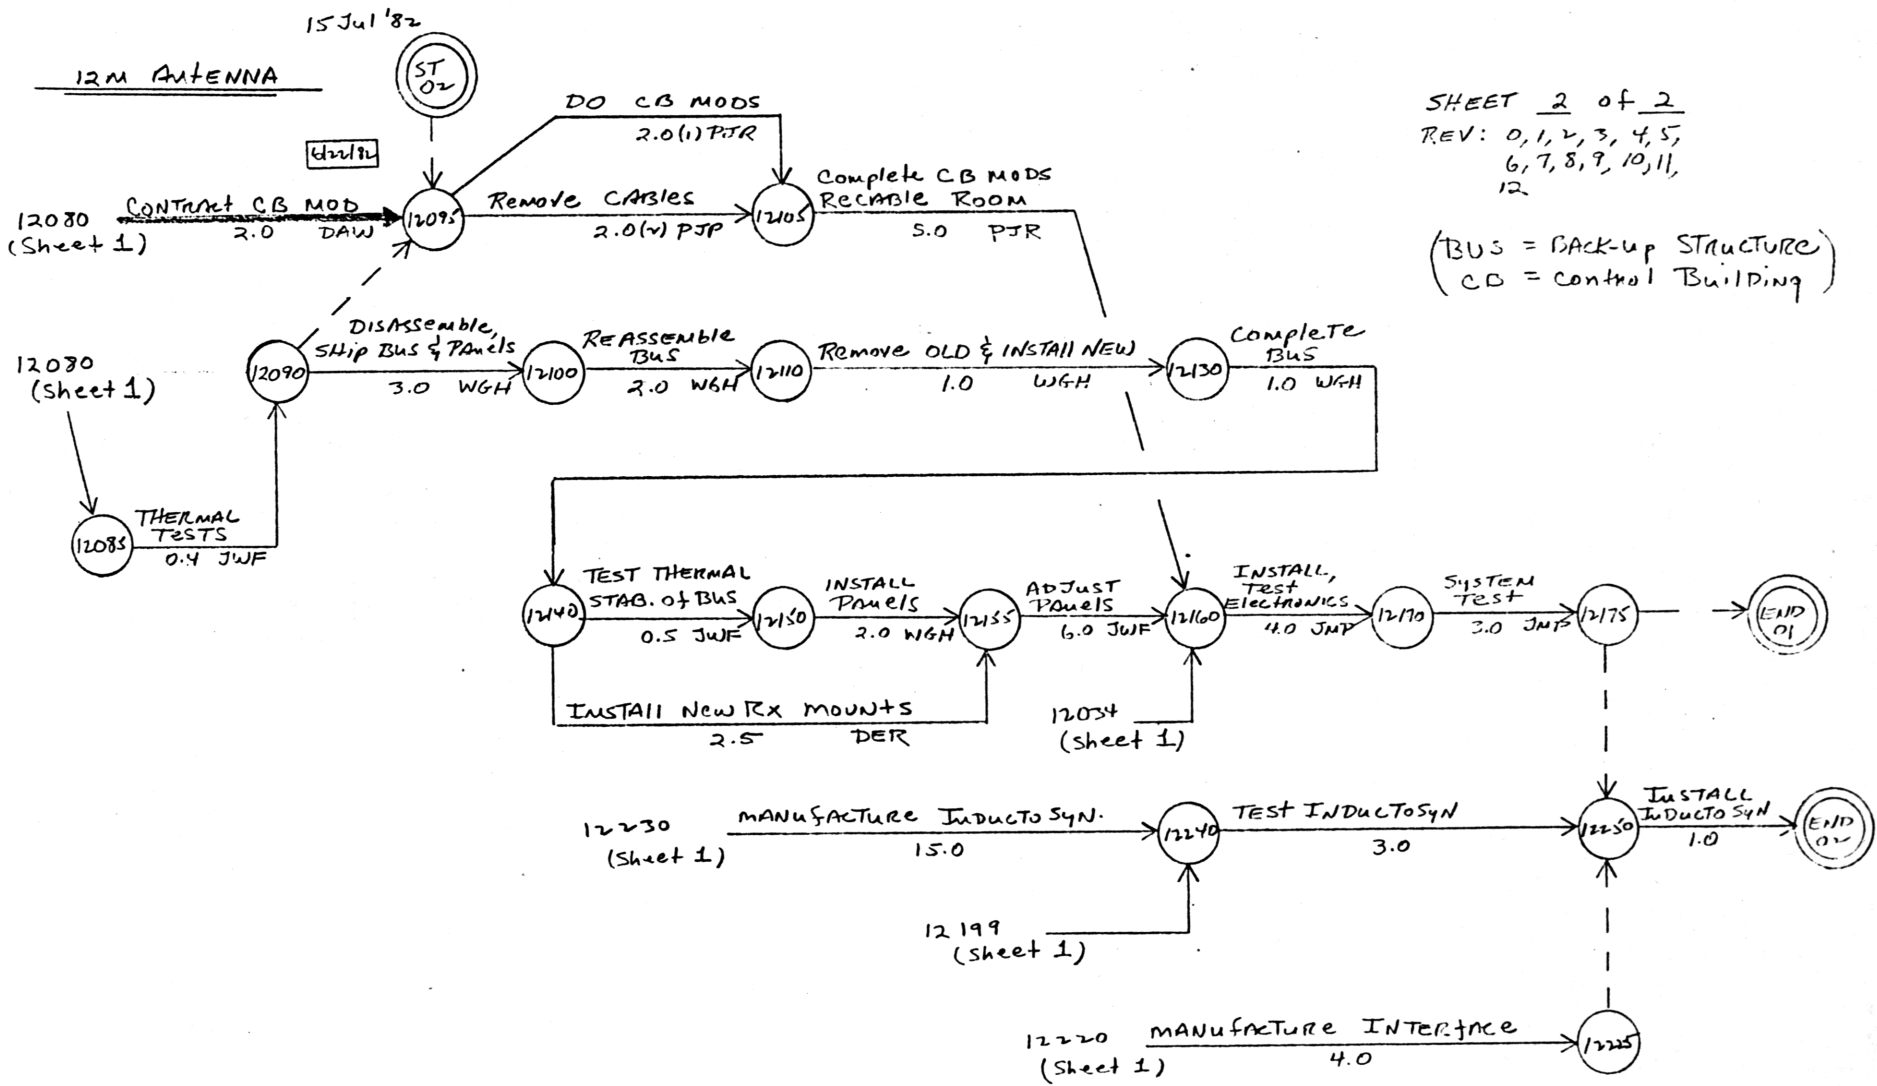 15 Jul '82
12M ANTENNA
ST
02
6/22/82
SHEET 2 of 2
REV: 0, 1, 2, 3, 4, 5,
6, 7, 8, 9, 10, 11,
12
(BUS = BACK-up STRUCTURE
CB = Control Building)
DO CB MODS
2.0(1) PJR
12080
(Sheet 1)
CONTRACT CB MOD
2.0 DAW
12095
REMOVE CABLES
2.0(2) PJP
12105
Complete CB MODS
RECABLE ROOM
5.0 PJR
12080
(Sheet 1)
12090
DISASSemble,
SHip BUS & PANELS
3.0 WGH
12100
REASSEMBLE
BUS
2.0 WGH
12110
Remove OLD & INSTALL NEW
1.0 WGH
12130
COMPLETE
BUS
1.0 WGH
12085
THERMAL
TESTS
0.4 JWF
12140
TEST THERMAL
STAB. of BUS
0.5 JWF
12150
INSTALL
PANELS
2.0 WGH
12155
ADJUST
PANELS
6.0 JWF
12160
INSTALL,
TEST
ELECTRONICS
4.0 JMP
12170
SYSTEM
TEST
3.0 JMP
12175
END
01
INSTALL NEW RX MOUNTS
2.5 DER
12034
(Sheet 1)
12230
(Sheet 1)
MANUFACTURE INDUCTOSYN.
15.0
12240
TEST INDUCTOSYN
3.0
12250
INSTALL
INDUCTOSYN
1.0
END
02
12199
(Sheet 1)
12220
(Sheet 1)
MANUFACTURE INTERFACE
4.0
12225